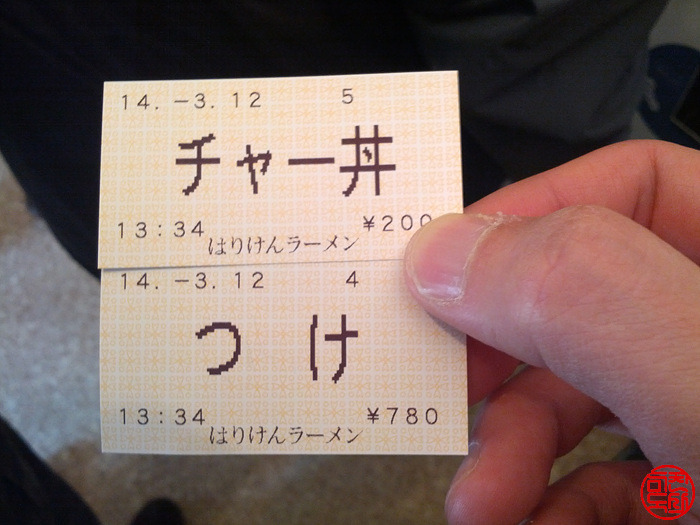 14. -3. 12 5
チャー丼
13:34 ¥200
はりけんラーメン
14. -3. 12 4
つけ
13:34 ¥780
はりけんラーメン